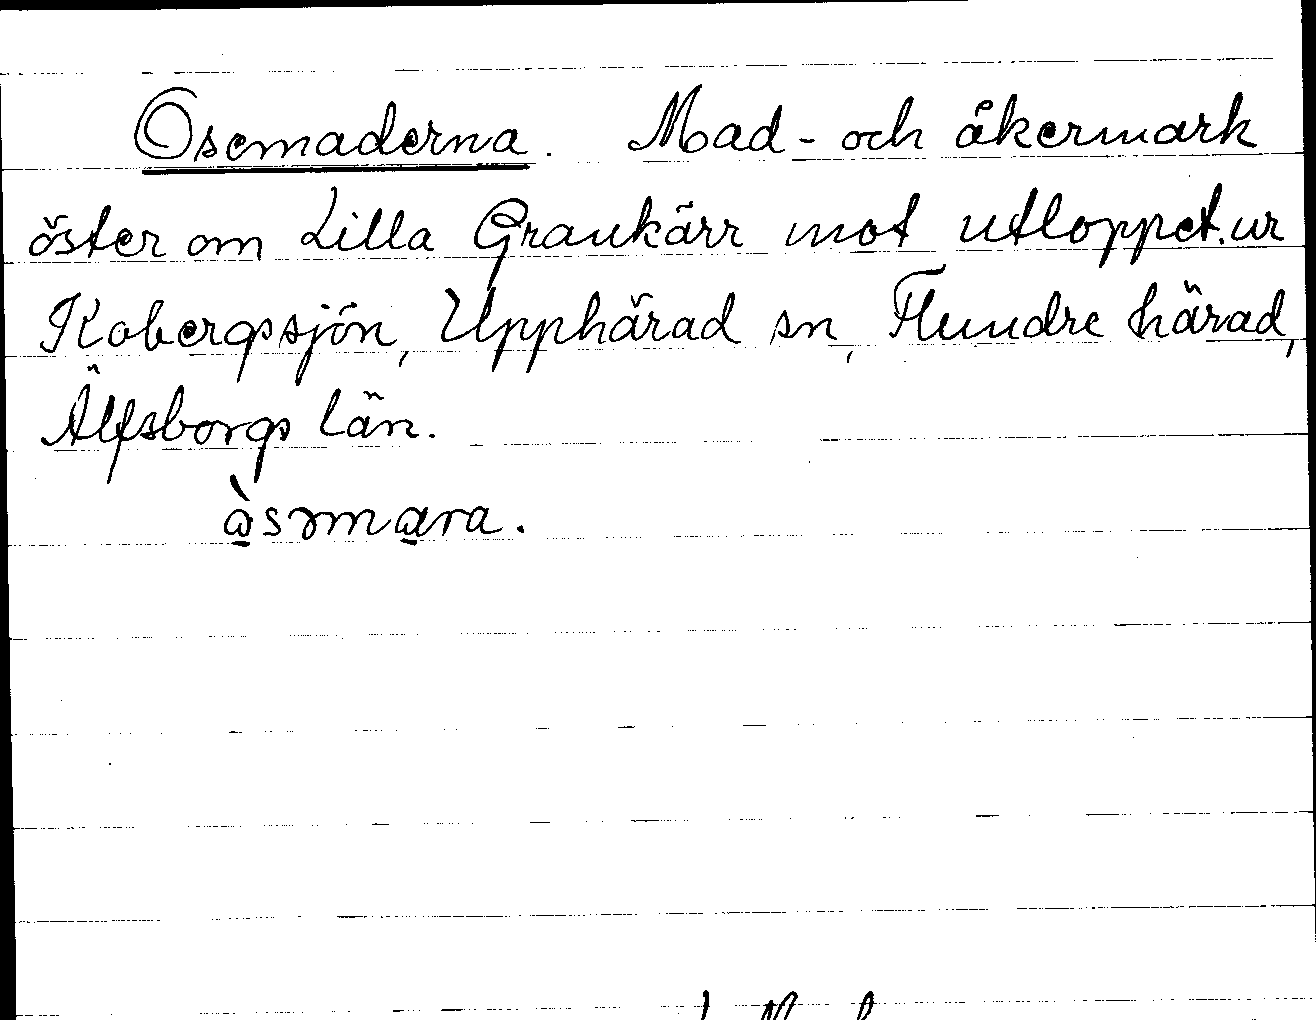 Osemaderna. Mad- och åkermark
öster om Lilla Grankärr mot utloppet ur
Kobergssjön, Upphärad sn, Flundre härad,
Älfsborgs län.